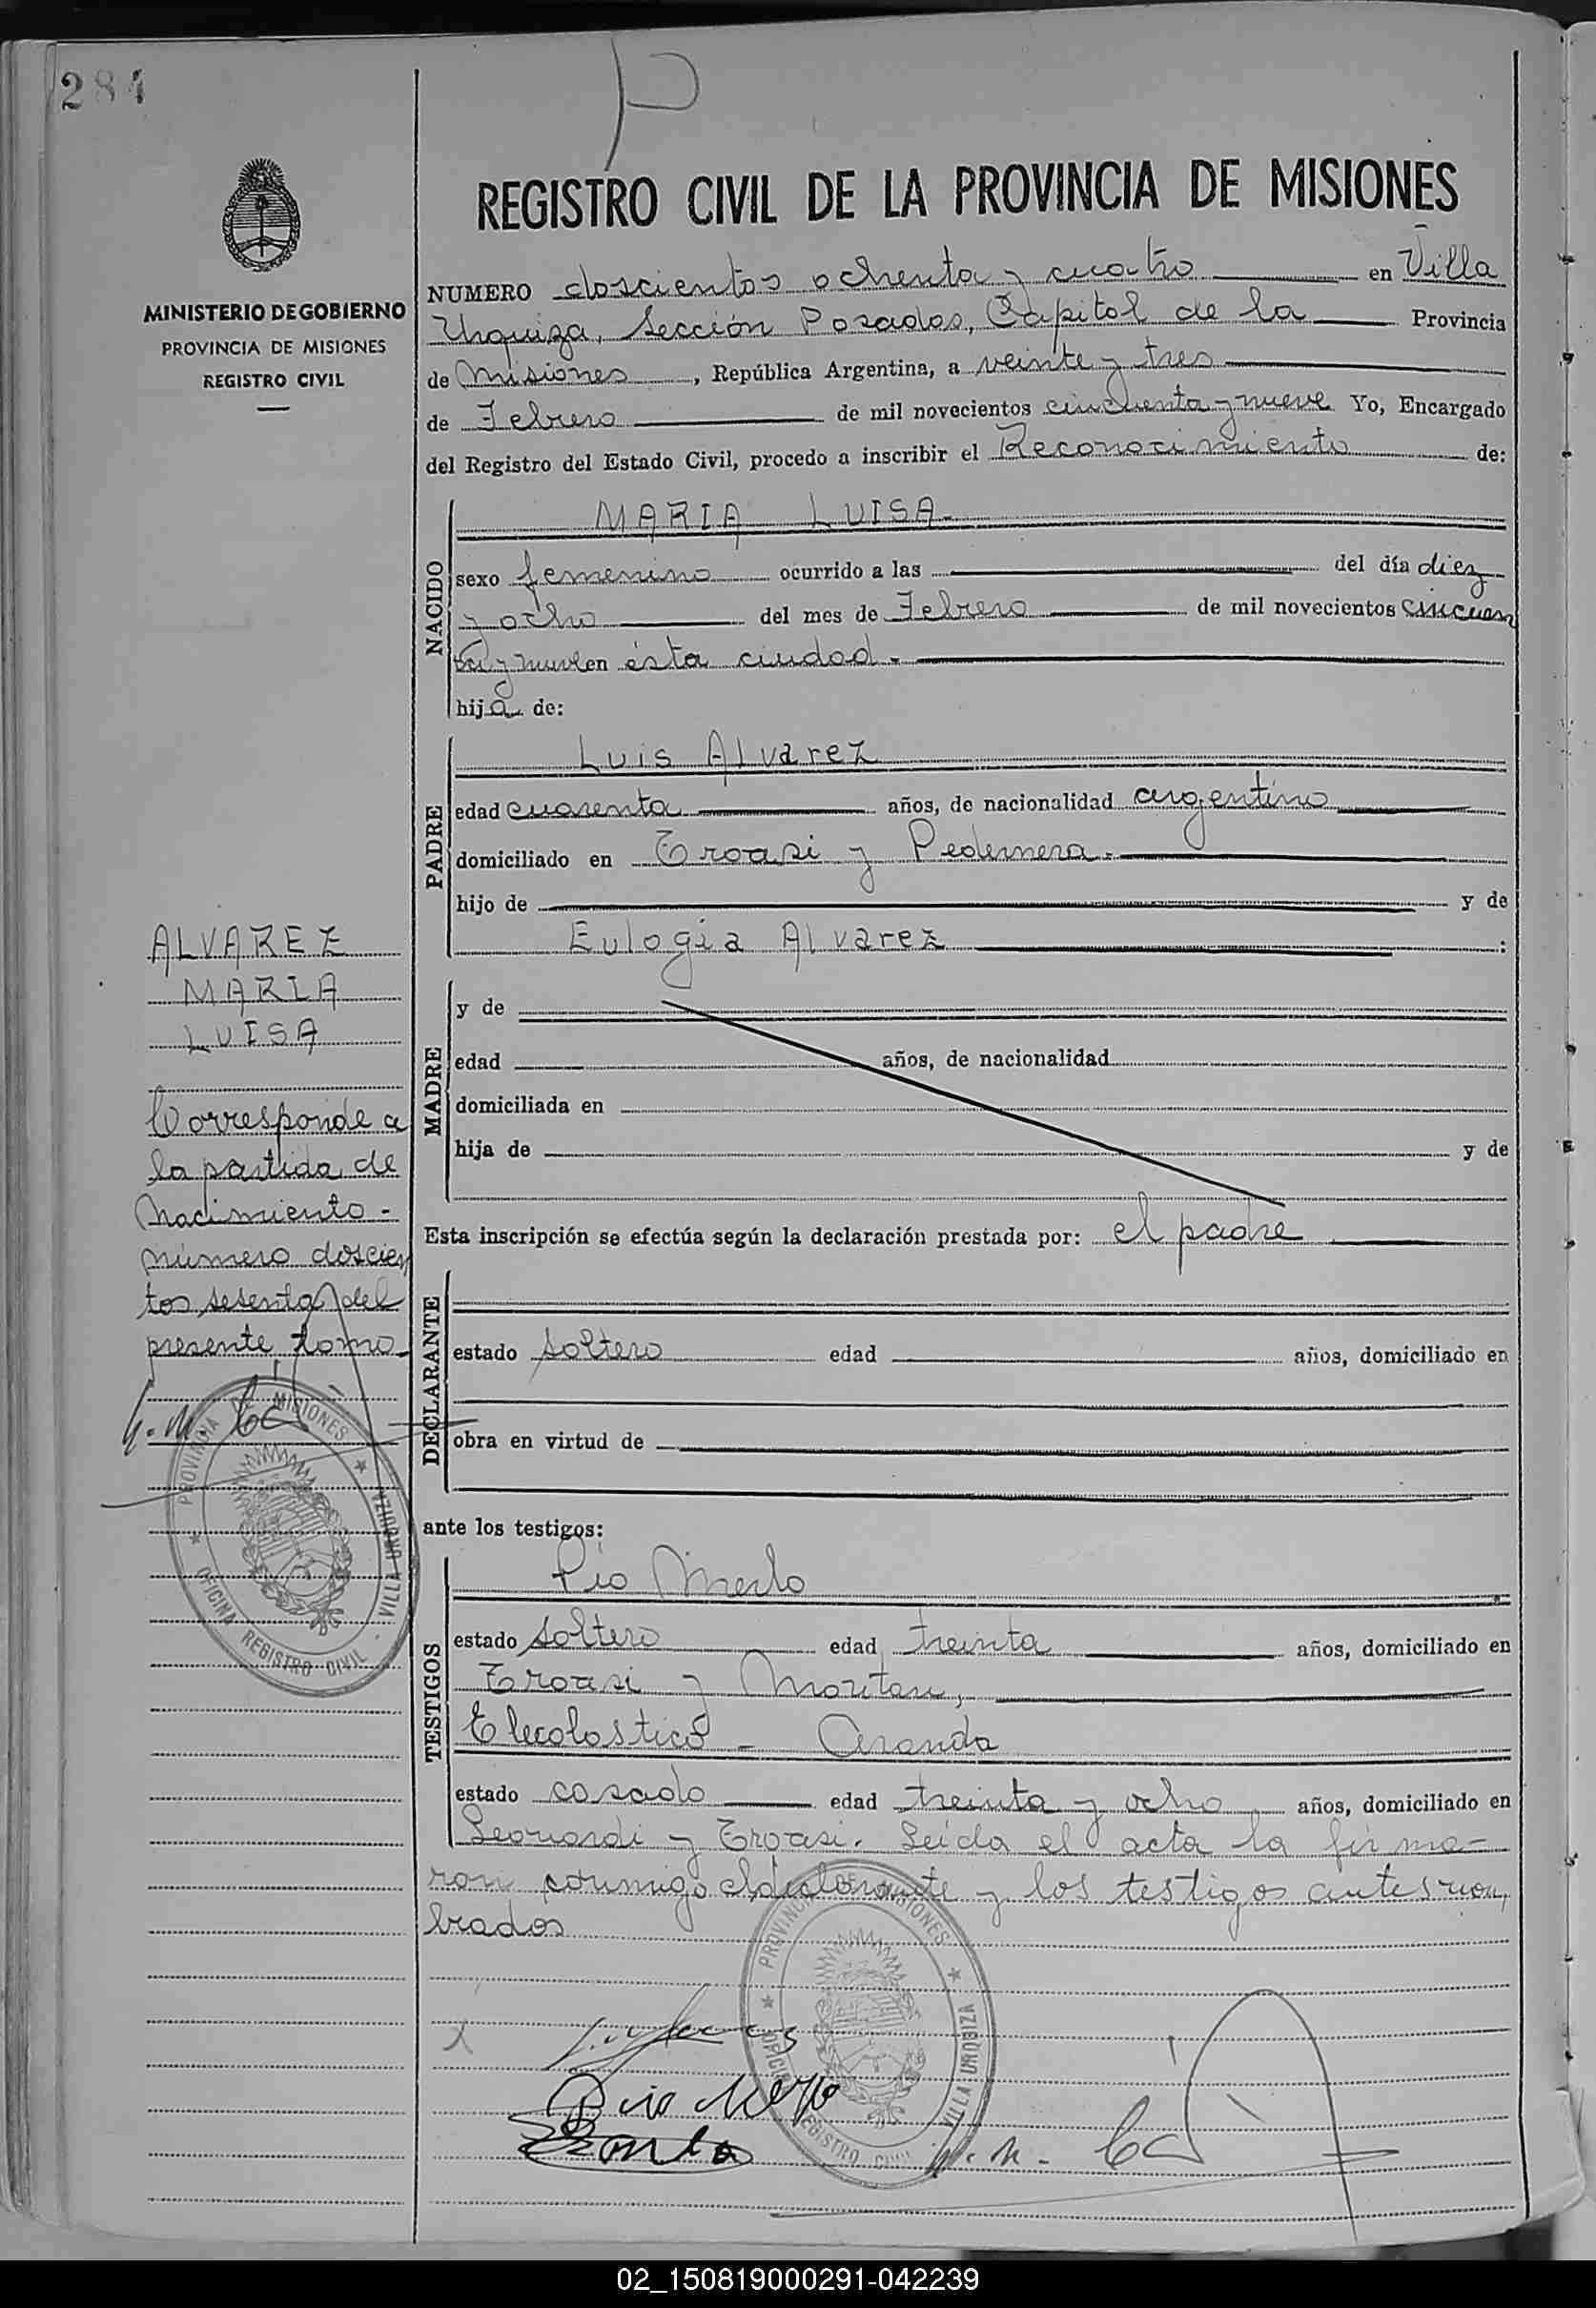 284
P
REGISTRO CIVIL DE LA PROVINCIA DE MISIONES
MINISTERIO DE GOBIERNO
PROVINCIA DE MISIONES
REGISTRO CIVIL
NUMERO doscientos ochenta y cuatro en Villa
Urquiza, Sección Posadas, Capital de la Provincia
de Misiones, República Argentina, a veinte y tres
de Febrero de mil novecientos cincuenta y nueve Yo, Encargado
del Registro del Estado Civil, procedo a inscribir el Reconocimiento de:
NACIDO
MARIA LUISA.
sexo femenino ocurrido a las del día diez
y ocho del mes de Febrero de mil novecientos cincuen
ta y nueve en ésta ciudad.
hija de:
PADRE
Luis Alvarez
edad cuarenta años, de nacionalidad argentino
domiciliado en y Pedernera.
hijo de y de
Eulogia Alvarez :
MADRE
y de
edad años, de nacionalidad
domiciliada en
hija de y de
Esta inscripción se efectúa según la declaración prestada por: el padre
DECLARANTE
estado soltero edad años, domiciliado en
obra en virtud de
ante los testigos:
TESTIGOS
Pío Merlo
estado soltero edad treinta años, domiciliado en
y
Aranda
estado casado edad treinta y ocho años, domiciliado en
y Leída el acta la firma-
ron conmigo el declarante y los testigos antes nom
brados
ALVAREZ
MARIA
LUISA
Corresponde a
la partida de
Nacimiento -
número doscien
tos sesenta del
presente tomo.
PROVINCIA DE MISIONES
OFICINA REGISTRO CIVIL - VILLA URQUIZA
PROVINCIA DE MISIONES
OFICINA REGISTRO CIVIL VILLA URQUIZA
02_150819000291-042239